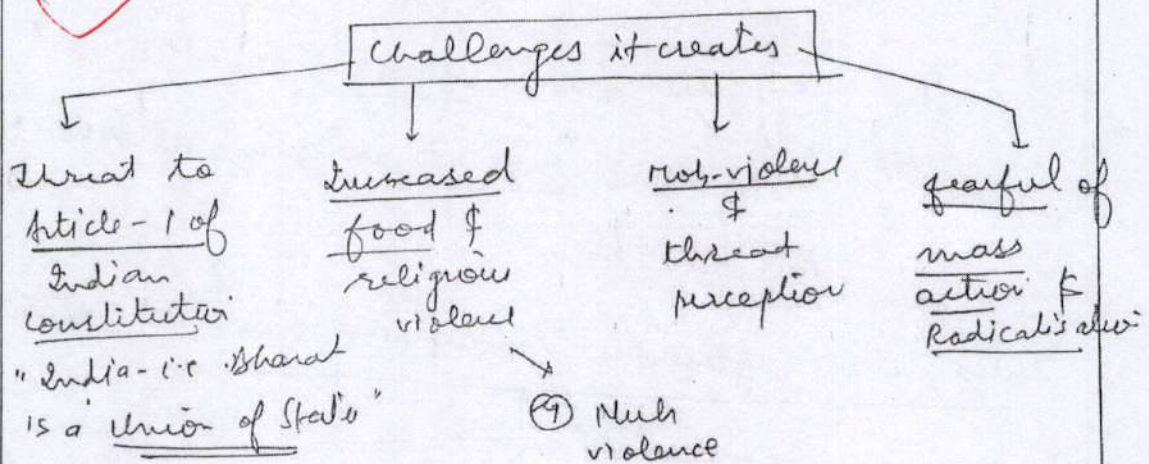 Challenges it creates
Threat to
Article-1 of
Indian
Constitution
"India-i.e Bharat
is a Union of State"
Increased
food &
religious
violence
eg Nuh
violence
Mob-violence
&
threat
perception
fearful of
mass
action &
Radicalisation